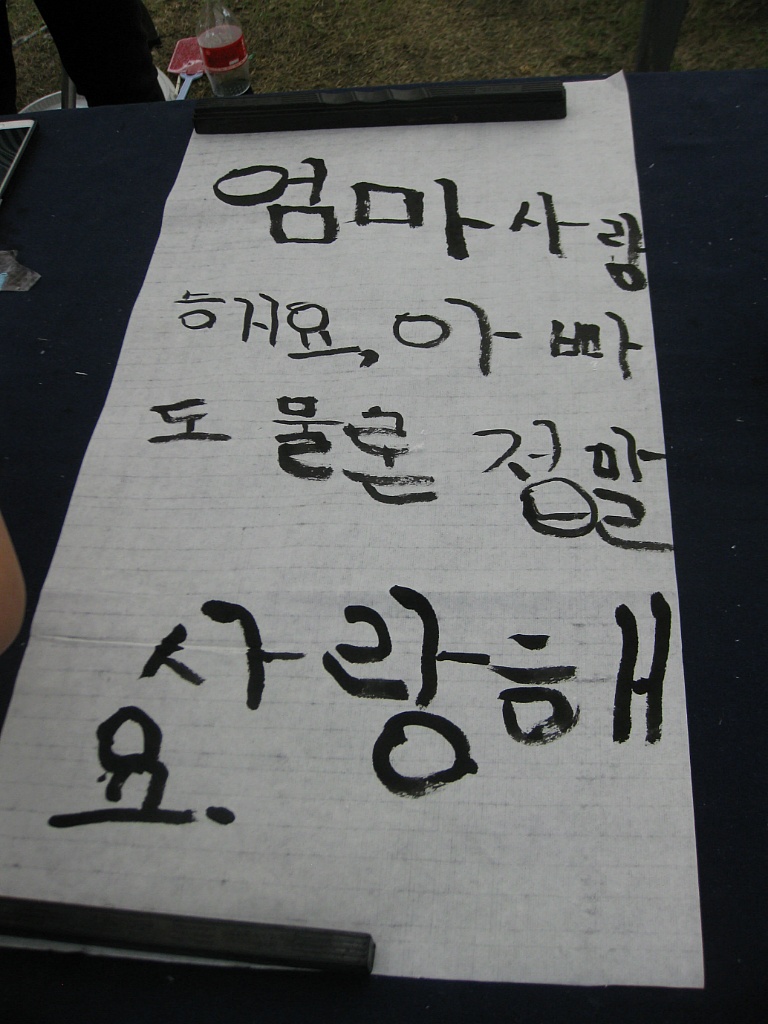 엄마사랑
해요, 아빠
도 물론 정말
사랑해
요.